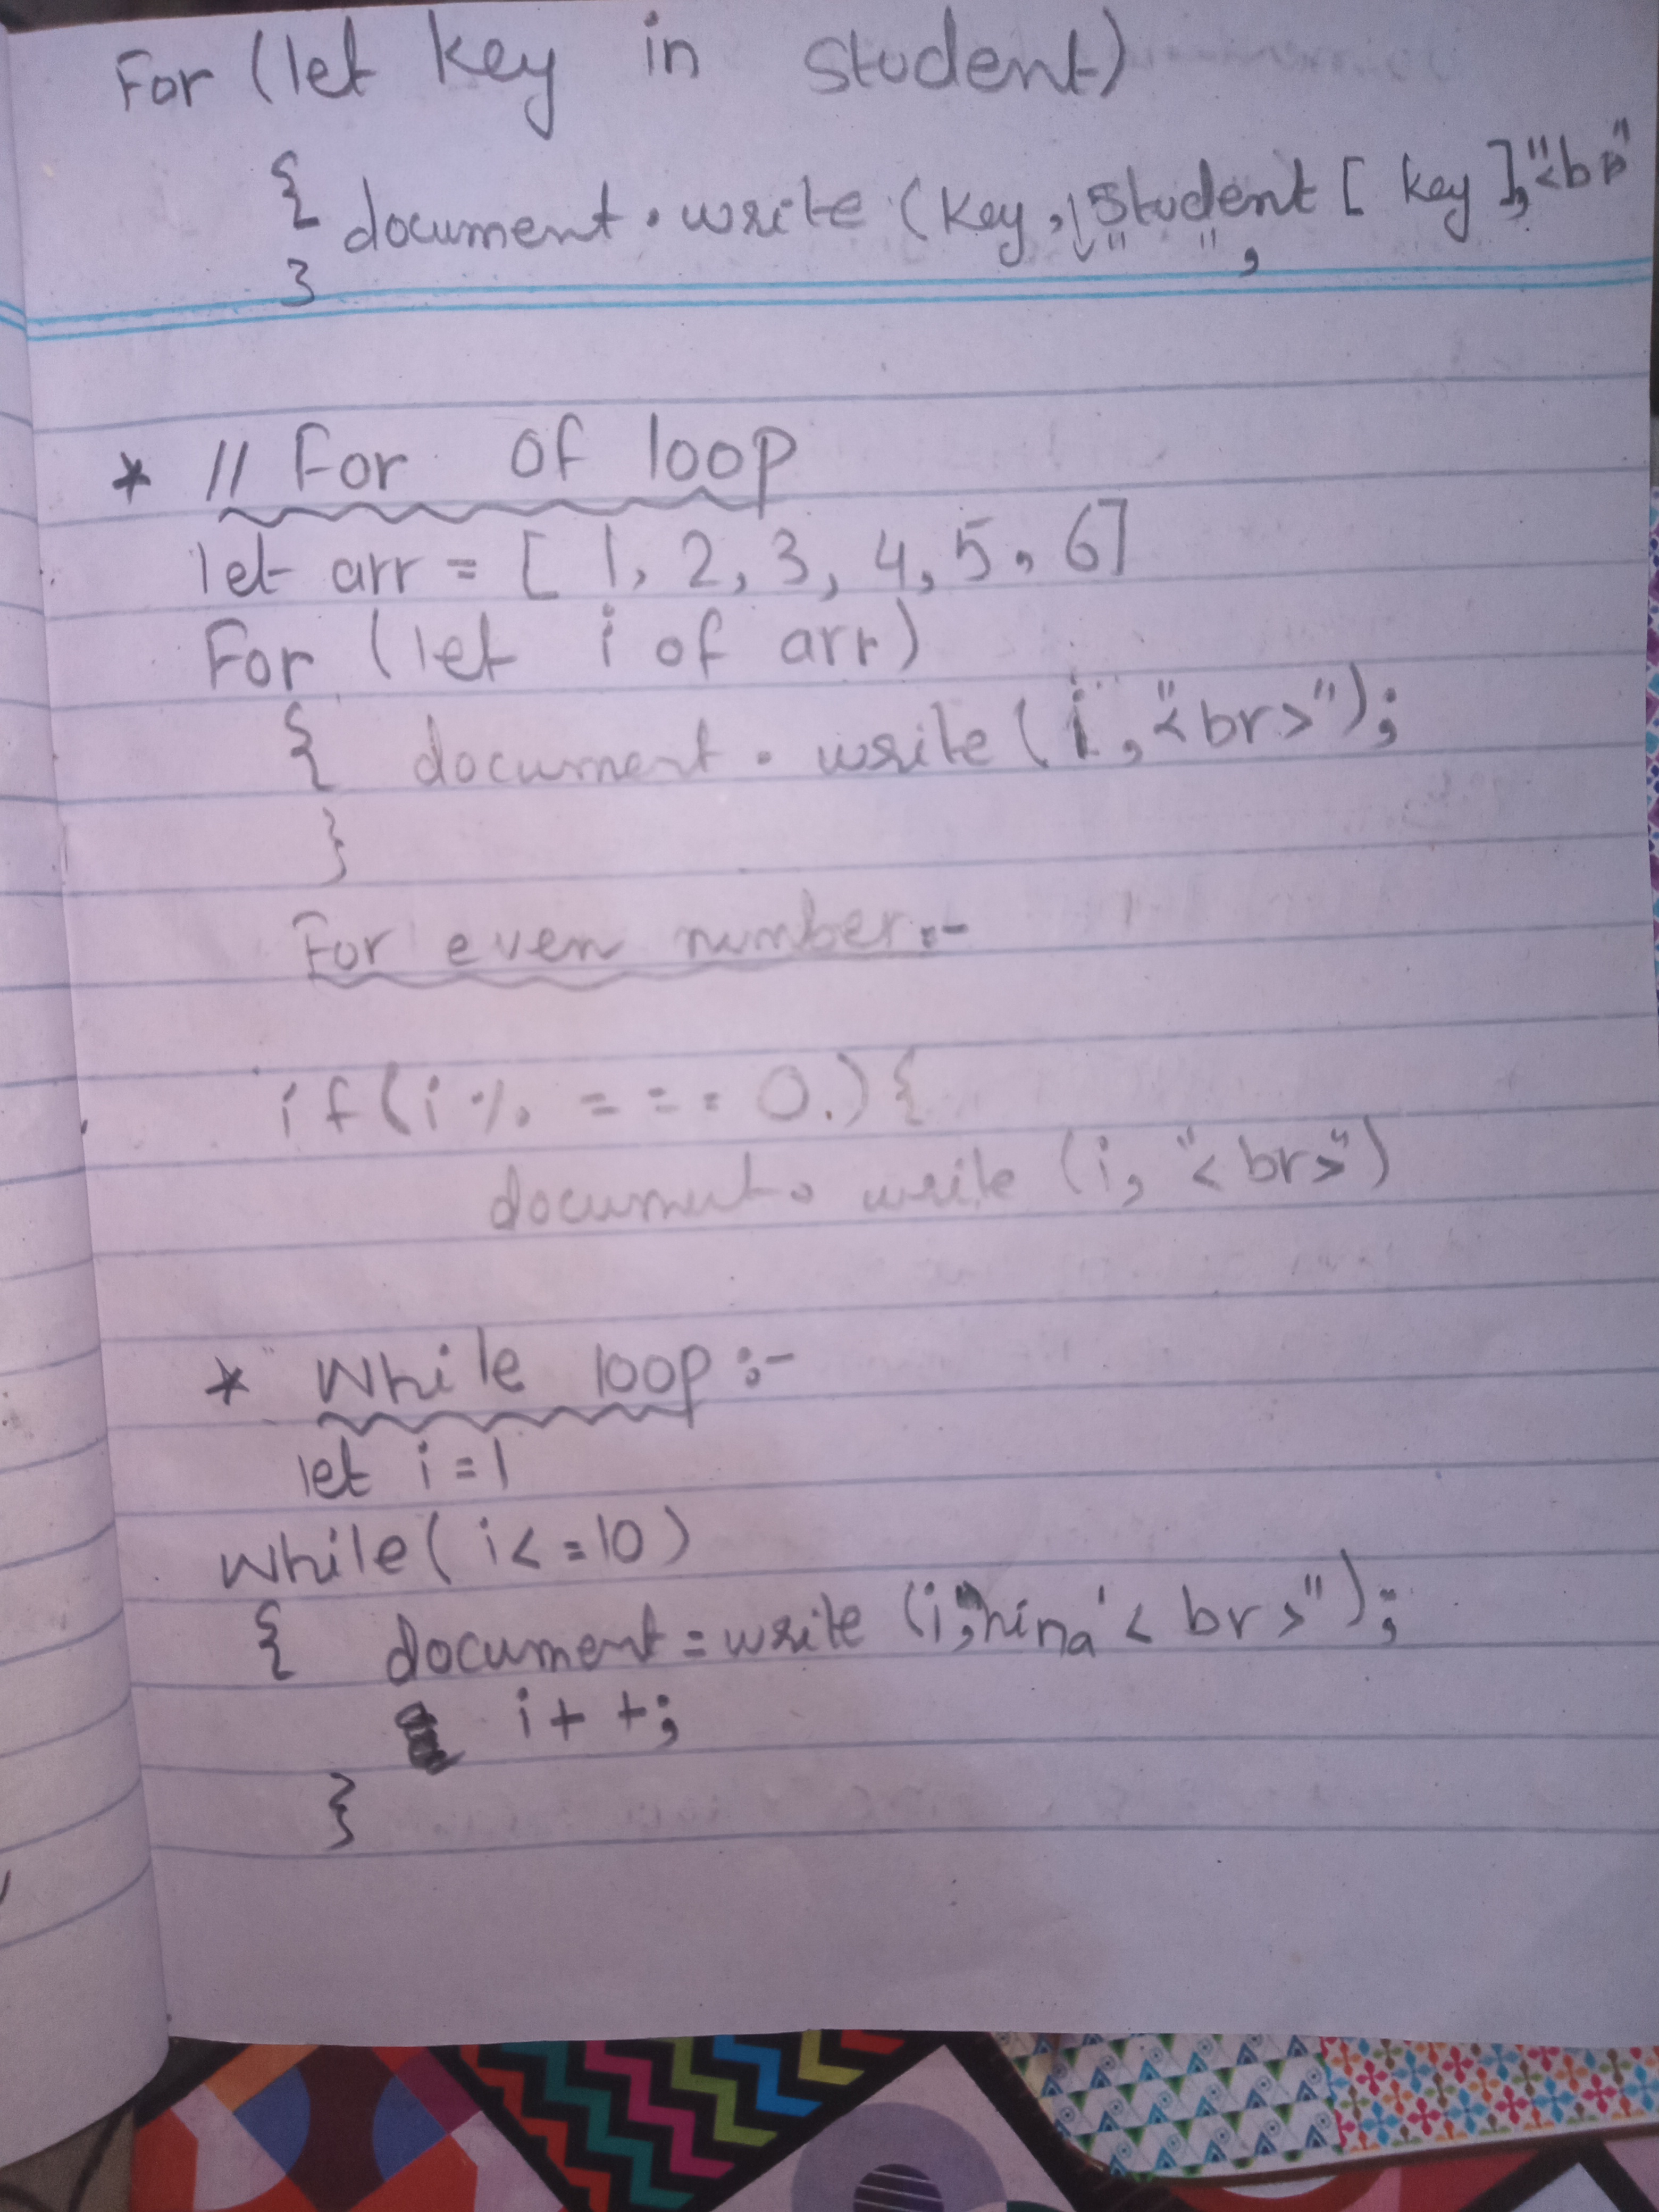 For (let key in student)
{ document.write (key, student [ key ], "<br>"
" ",
}
* // For of loop
let arr = [ 1, 2, 3, 4, 5, 6]
For (let i of arr)
{ document.write (i, "<br>");
}
For even number:-
if (i % === 0.) {
document.write (i, "<br>")
* While loop:-
let i = 1
while ( i <= 10 )
{ document = write (i, "hina' < br >");
i + +;
}